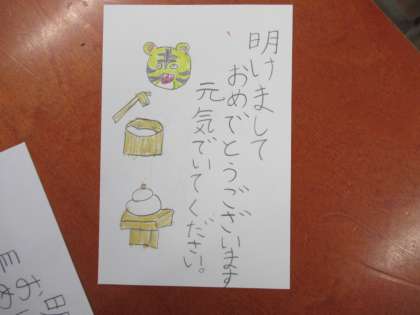 明けまして
おめでとうございます
元気でいてください。
明
お